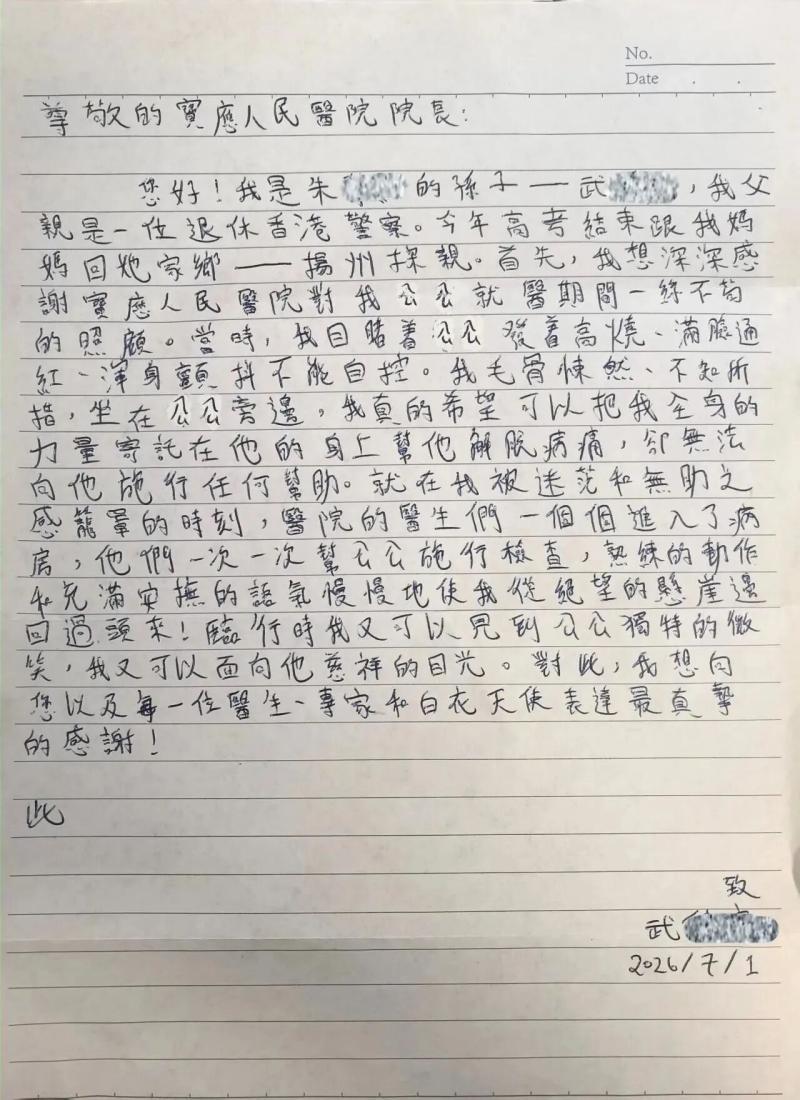 No.
Date . .
尊敬的寶應人民醫院院長:
您好!我是朱的孫子——武,我父
親是一位退休香港警察。今年高考結束跟我媽
媽回她家鄉——揚州探親。首先,我想深深感
謝寶應人民醫院對我公公就醫期間一絲不苟
的照顧。當時,我目睹着公公發着高燒、滿臉通
紅、渾身顫抖不能自控。我毛骨悚然、不知所
措,坐在公公旁邊,我真的希望可以把我全身的
力量寄託在他的身上幫他解脫病痛,卻無法
向他施行任何幫助。就在我被迷茫和無助之
感籠罩的時刻,醫院的醫生們一個個進入了病
房,他們一次一次幫公公施行檢查,熟練的動作
和充滿安撫的語氣慢慢地使我從絕望的懸崖邊
回過頭來!臨行時我又可以見到公公獨特的微
笑,我又可以面向他慈祥的目光。對此,我想向
您以及每一位醫生、專家和白衣天使表達最真摯
的感謝!
此
致
武
2026/7/1